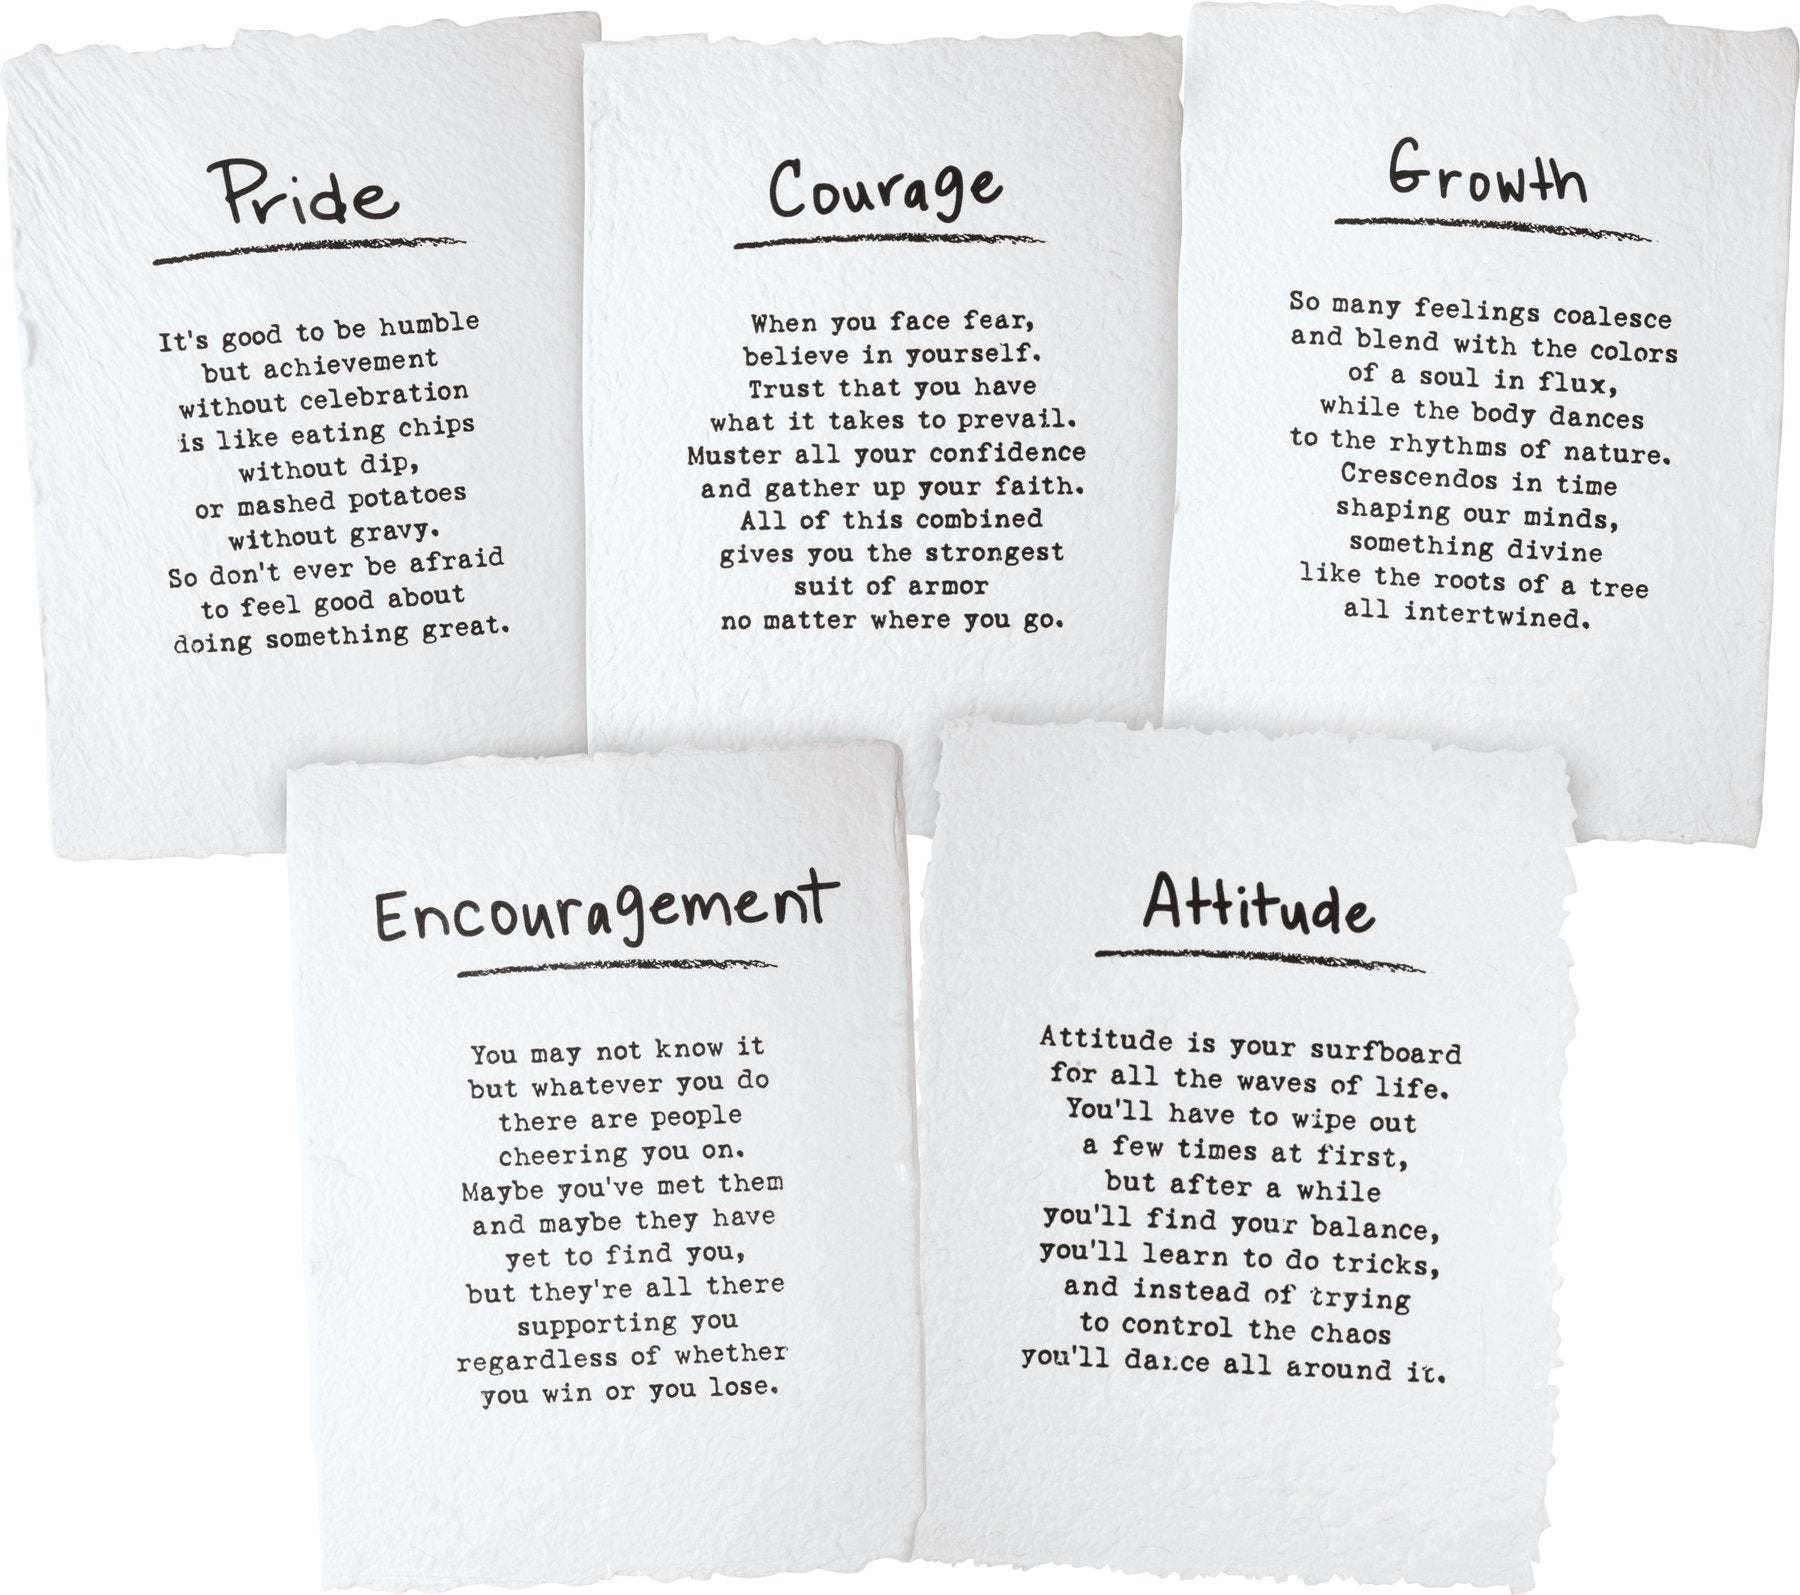 Pride
It's good to be humble
but achievement
without celebration
is like eating chips
without dip,
or mashed potatoes
without gravy.
So don't ever be afraid
to feel good about
doing something great.
Courage
When you face fear,
believe in yourself.
Trust that you have
what it takes to prevail.
Muster all your confidence
and gather up your faith.
All of this combined
gives you the strongest
suit of armor
no matter where you go.
Growth
So many feelings coalesce
and blend with the colors
of a soul in flux,
while the body dances
to the rhythms of nature.
Crescendos in time
shaping our minds,
something divine
like the roots of a tree
all intertwined.
Encouragement
You may not know it
but whatever you do
there are people
cheering you on.
Maybe you've met them
and maybe they have
yet to find you,
but they're all there
supporting you
regardless of whether
you win or you lose.
Attitude
Attitude is your surfboard
for all the waves of life.
You'll have to wipe out
a few times at first,
but after a while
you'll find your balance,
you'll learn to do tricks,
and instead of trying
to control the chaos
you'll dance all around it.